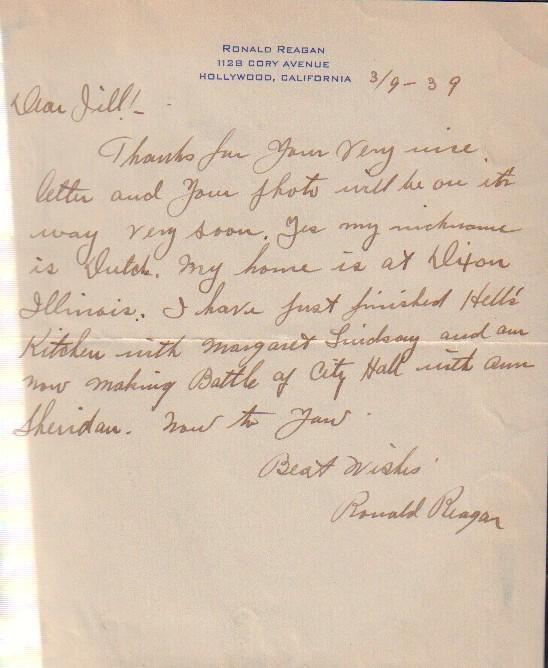 RONALD REAGAN
1128 CORY AVENUE
HOLLYWOOD, CALIFORNIA
3/9-39
Dear Jill!-
Thanks for your very nice
letter and your photo will be on its
way very soon. Yes my nickname
is Dutch. My home is at Dixon
Illinois. I have just finished Hell's
Kitchen with Margaret Lindsay and am
now making Battle of City Hall with Ann
Sheridan. Now to
Best Wishes
Ronald Reagan